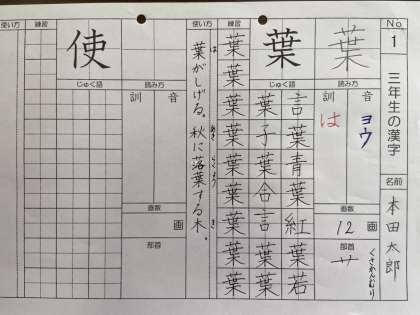 No. 1
三年生の漢字
名前
本田太郎
葉
読み方
音
ヨウ
訓
は
画数
12画
部首
くさかんむり
艹
葉
じゅく語
言葉青葉紅葉若
葉子葉合言葉葉
練習
葉葉葉葉葉葉葉葉葉
使い方
は あき らくよう き
葉がしげる。秋に落葉する木。
使
読み方
音
訓
画数
画
部首
じゅく語
練習
使い方